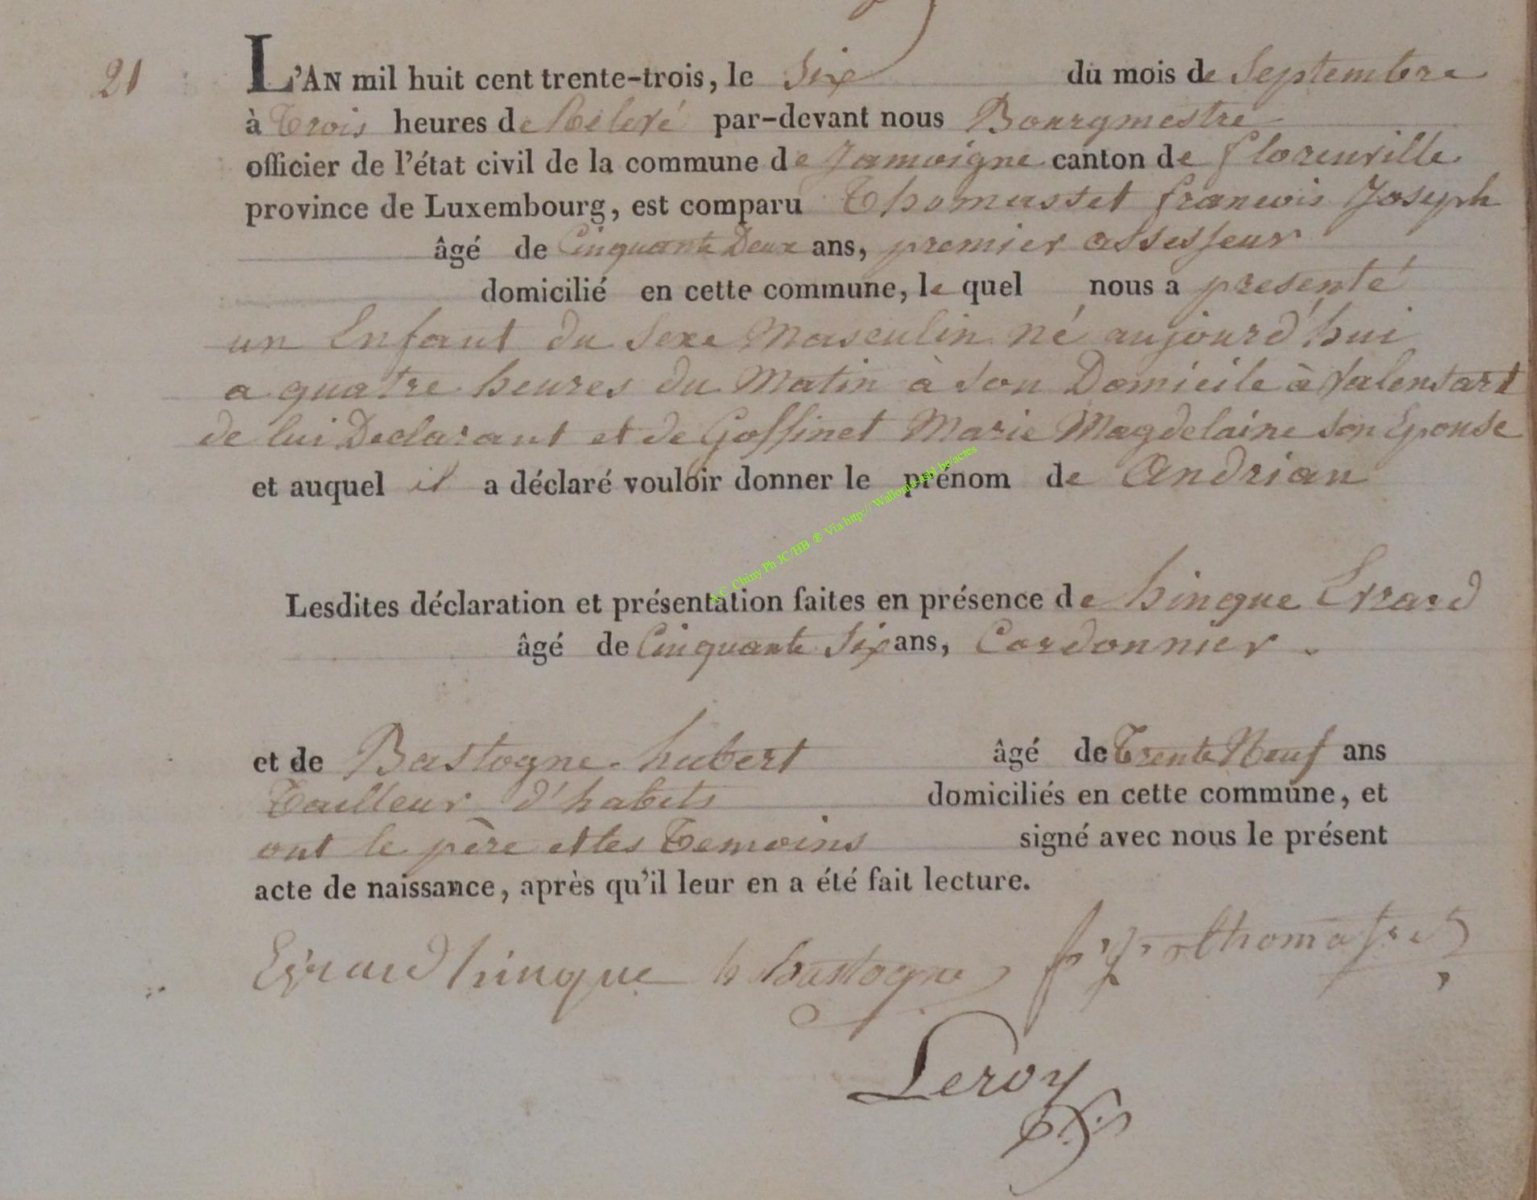 21
L'AN mil huit cent trente-trois, le Six du mois de Septembre
à Trois heures de Rélevé par-devant nous Bourgmestre
officier de l'état civil de la commune de Jamoigne canton de florenville
province de Luxembourg, est comparu Thomasset francois Joseph
âgé de Cinquante Deux ans, premier assesseur
domicilié en cette commune, le quel nous a presenté
un Enfant du Sexe Masculin né aujourd'hui
a quatre heures du Matin à Son Domicile à Valensart
de lui Declarant et de Goffinet Marie Magdelaine son Epouse
et auquel il a déclaré vouloir donner le prénom de Andrian
Chiny Ph JC/HB ® Via http://
Lesdites déclaration et présentation faites en présence de hinque Errard
âgé de Cinquante Six ans, Cordonnier.
et de Bastogne hubert âgé de Trente Neuf ans
Tailleur d'habits domiciliés en cette commune, et
ont le père et les Temoins signé avec nous le présent
acte de naissance, après qu'il leur en a été fait lecture.
Errard hinque h bastogne thomasset
Leroy